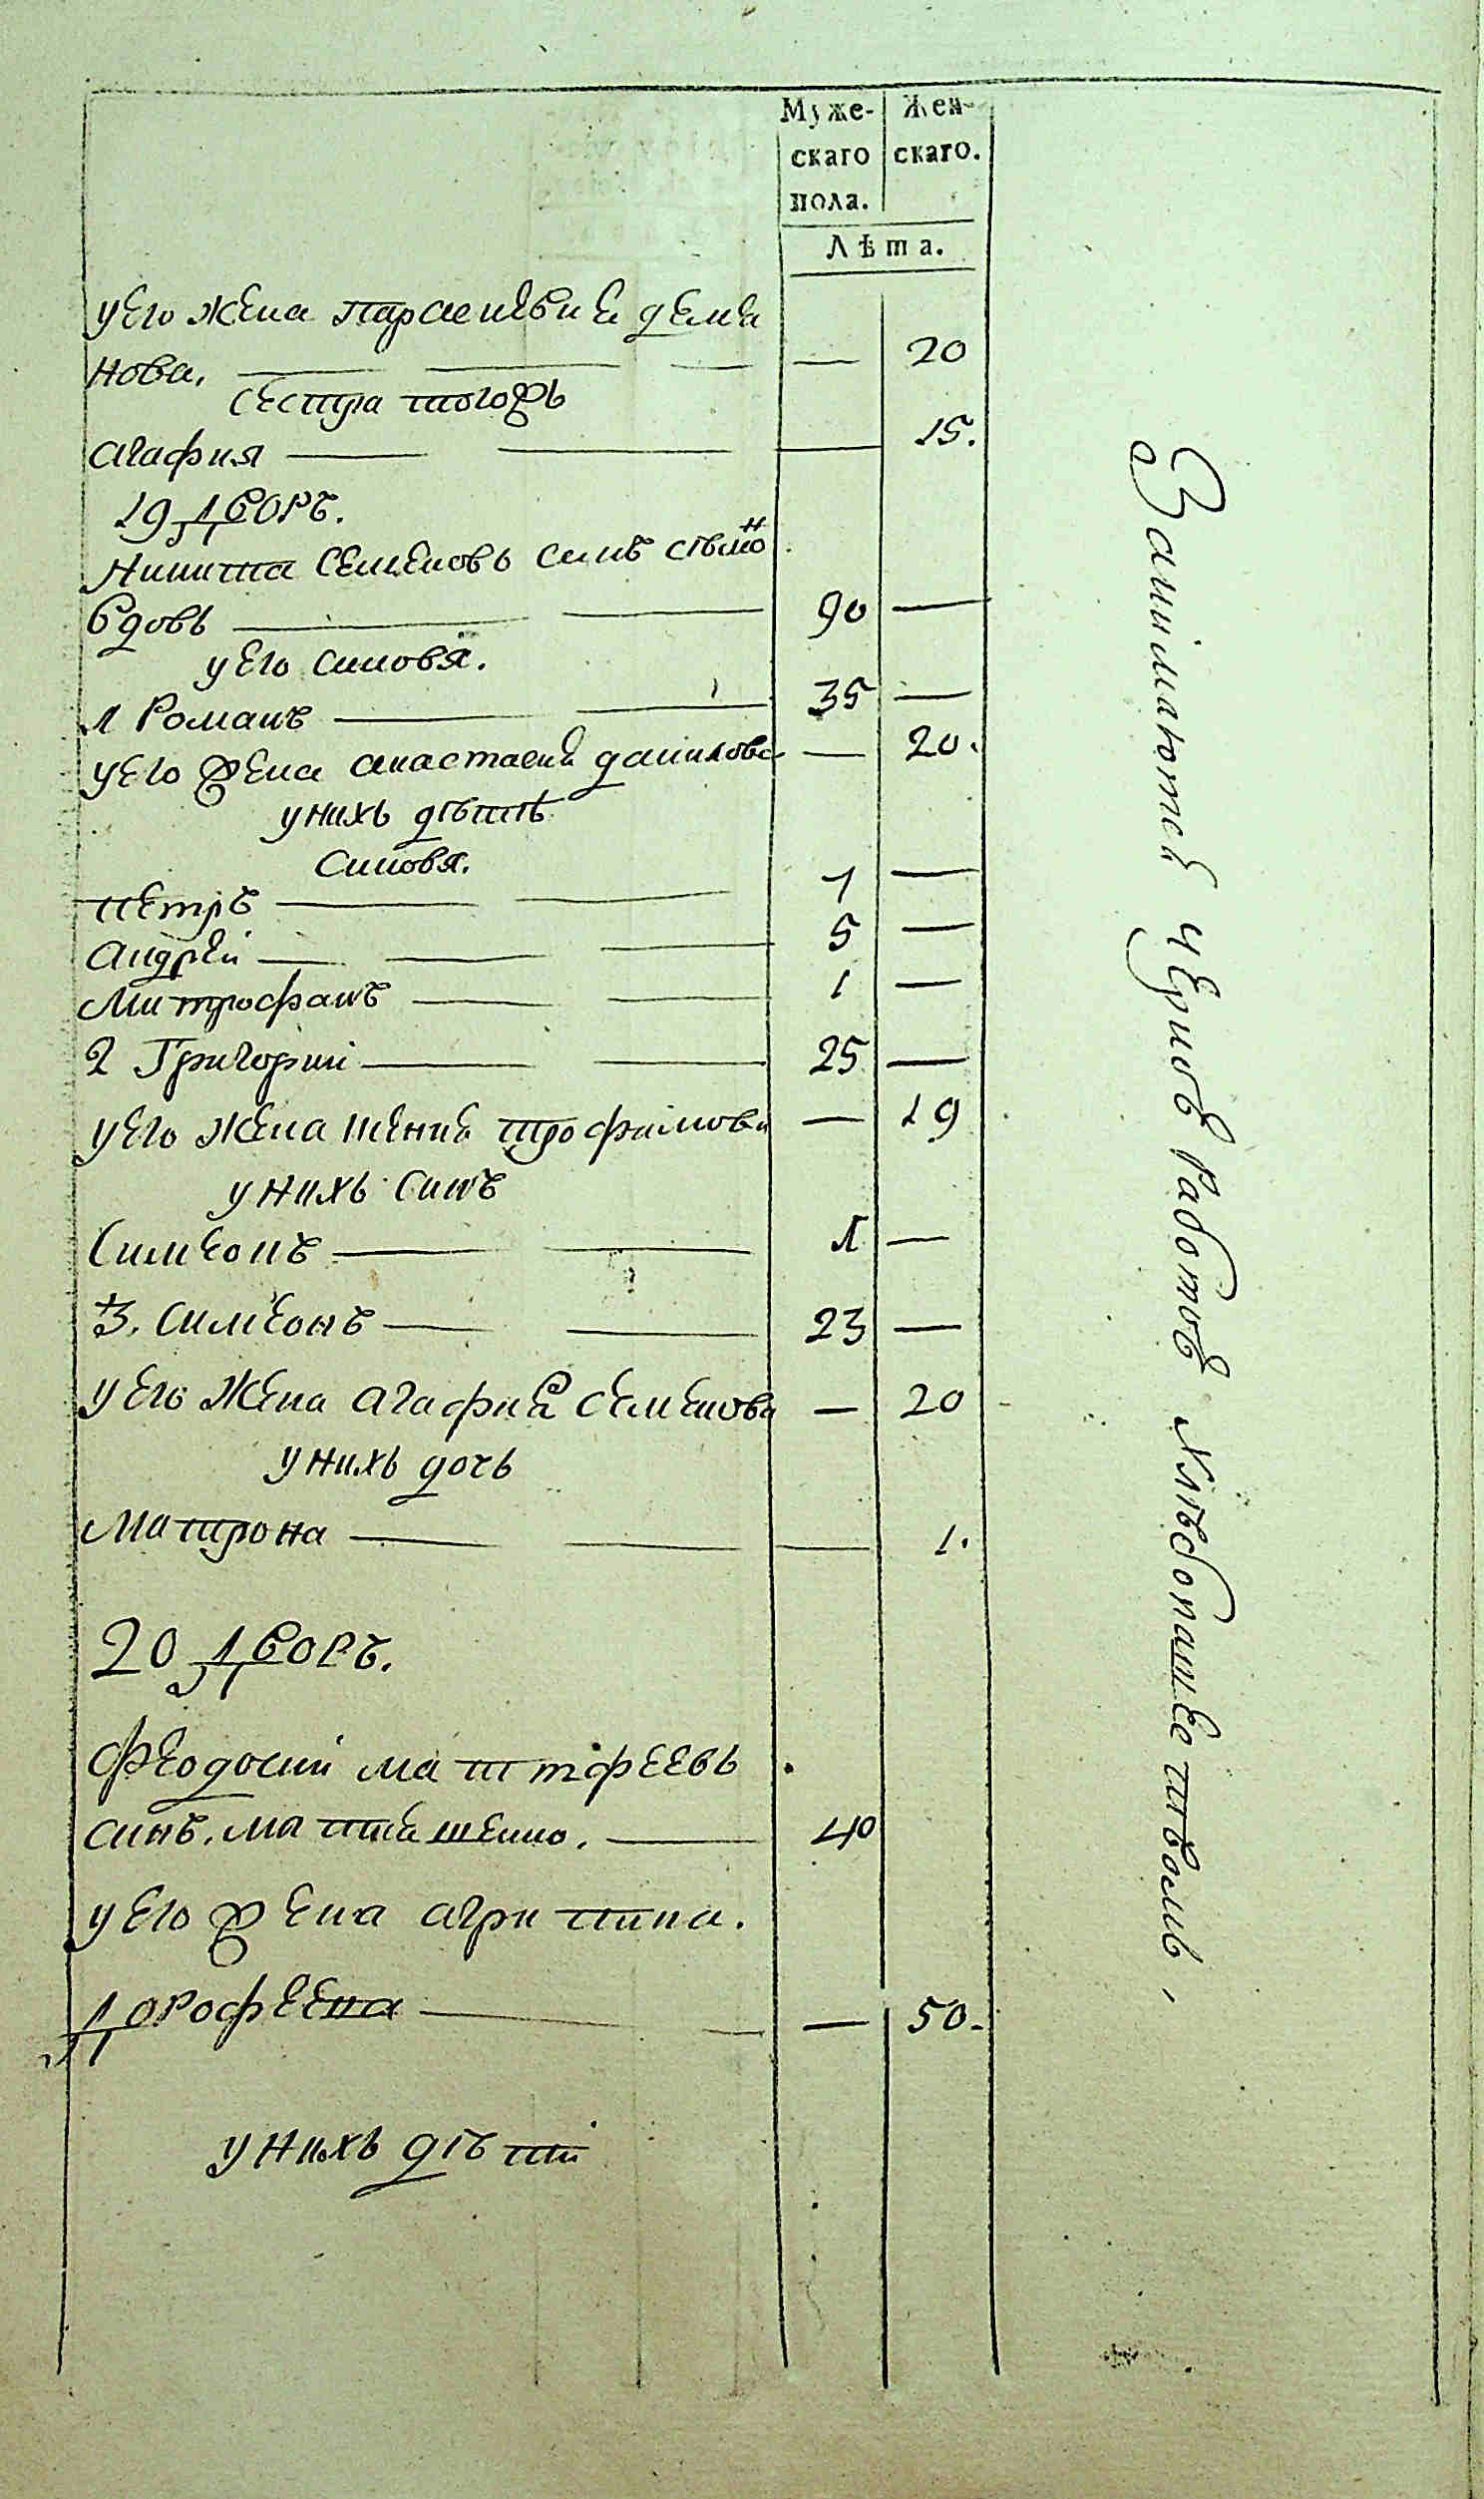 Муже-
скаго
пола.
Жен-
скаго.
Лѣта.
у его жена параскевиа дема
нова. — — 20
сестра тогожъ
агафия — — 15.
19 дворъ.
Никита Семеновъ синъ
вдовъ — 90 —
у его синовя.
1 Романъ — 35 —
у его жена анастасиа данилова — 20.
у нихъ дѣтѣ
синовя.
петръ — 7 —
андрей — 5 —
митрофанъ — 1 —
2 Григорий — 25 —
у его жена ксениа трофимова — 19
у нихъ синъ
Симеонъ — 1 —
3. симеонъ — 23 —
у его жена агафиа семенова — 20
у нихъ дочь
матрона — — 1.
20 дворъ.
феодосий маттфеевъ
синъ. — 40
у его жена агрипина.
дорофеева — — 50.
у нихъ дѣти
Занімаютса черноъ работоъ хлѣбопашеством,